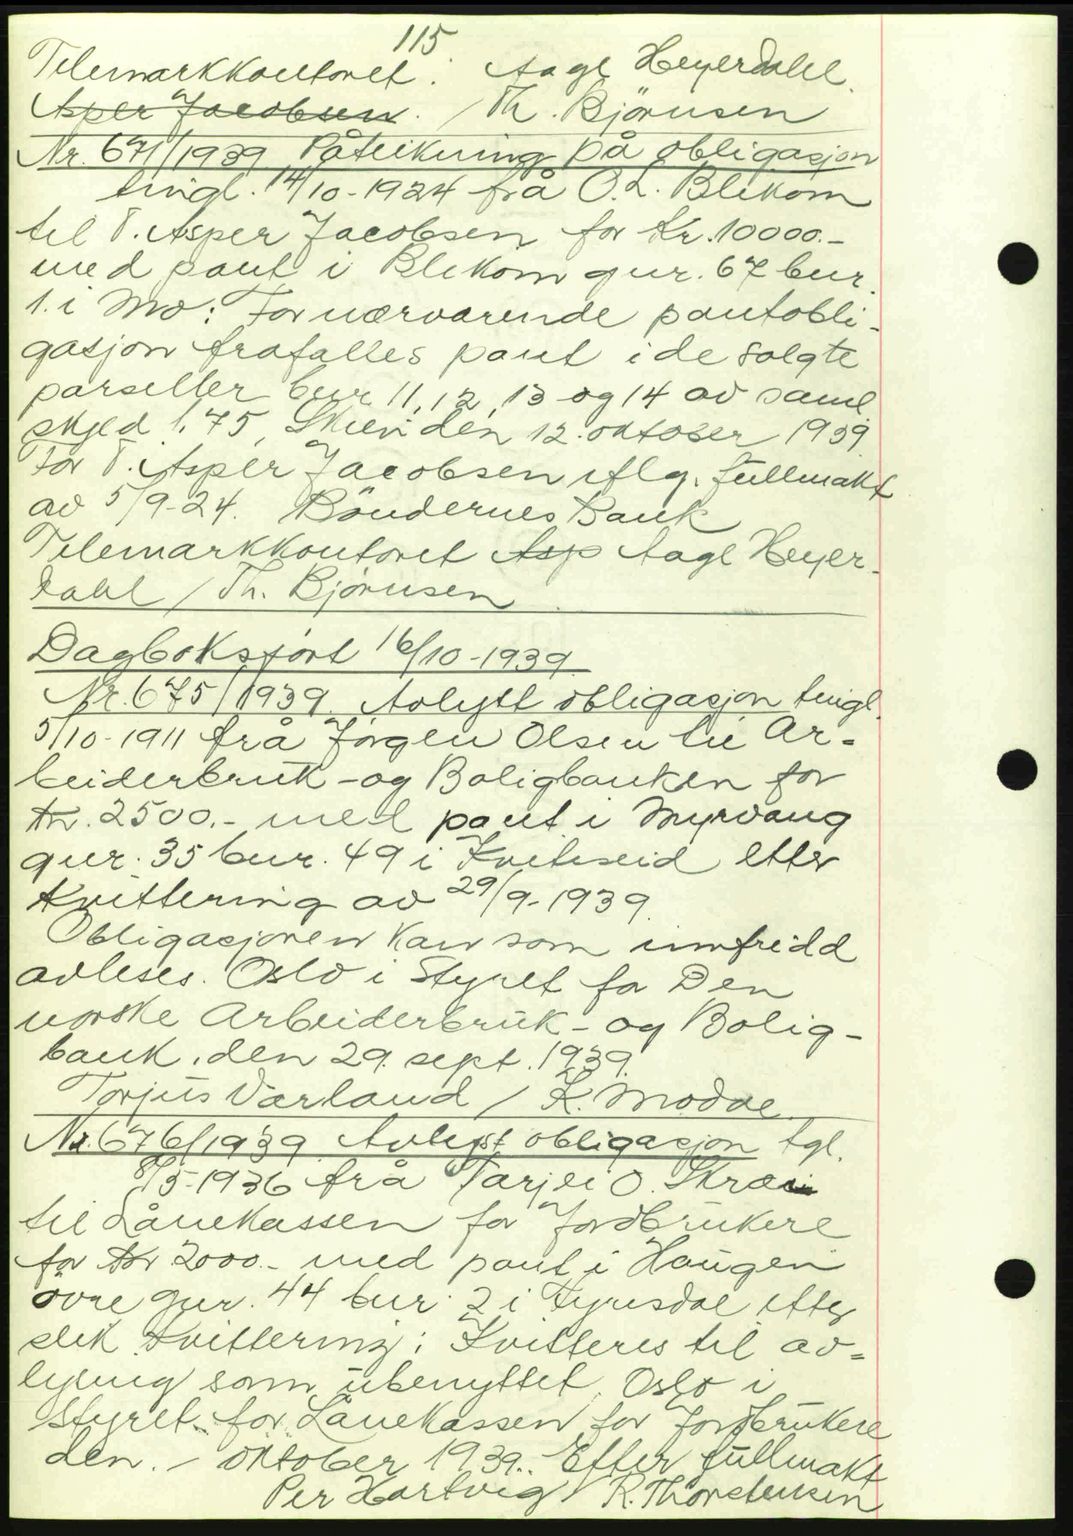 115
Telemarkkontoret: Aage Heyerdahl.
Asper Jacobsen. / Th. Björnsen
Nr. 671/1939 Påteikning på obligasjon
tingl. 14/10-1924 frå O. L. Blikom
til T. Asper Jacobsen for Kr. 10000.-
med pant i Blikom gnr. 67 bnr.
1. i Mo: For nærværende pantobli-
gasjon frafalles pant i de solgte
parseller bnr 11, 12, 13 og 14 av saml.
skyld 1.75, Skien den 12. oktober 1939
For T. Asper Jacobsen iflg. fullmakt
av 5/9-24. Böndernes Bank
Telemarkkontoret Asp Aage Heyer-
dahl / Th. Björnsen
Dagboksfört 16/10-1939
Nr. 675/1939. Avlyst obligasjon tingl.
5/10-1911 frå Jörgen Olsen til Ar-
beiderbruk-og Boligbanken for
Kr. 2500.- med pant i Myrvang
gnr. 35 bnr. 49 i Kviteseid etter
kvittering av 29/9-1939.
Obligasjonen kan som innfridd
avleses. Oslo i Styret for Den
norske Arbeiderbruk- og Bolig-
bank, den 29. sept. 1939.
Torjus Værland / K. Modal
Nr. 676/1939 Avlyst obligasjon tgl.
8/5-1936 frå Tarjei O. Skrei
til Lånekassen for Jordbrukere
for Kr 2000.- med pant i Haugen
övre gnr. 44 bnr. 2 i Fyresdal etter
slik kvittering: Kvitteres til av-
lysing som ubenyttet, Oslo i
Styret for Lånekassen for Jordbrukere
den. / oktober 1939.. Efter fullmakt
Per Hartvig / R. Thorstensen